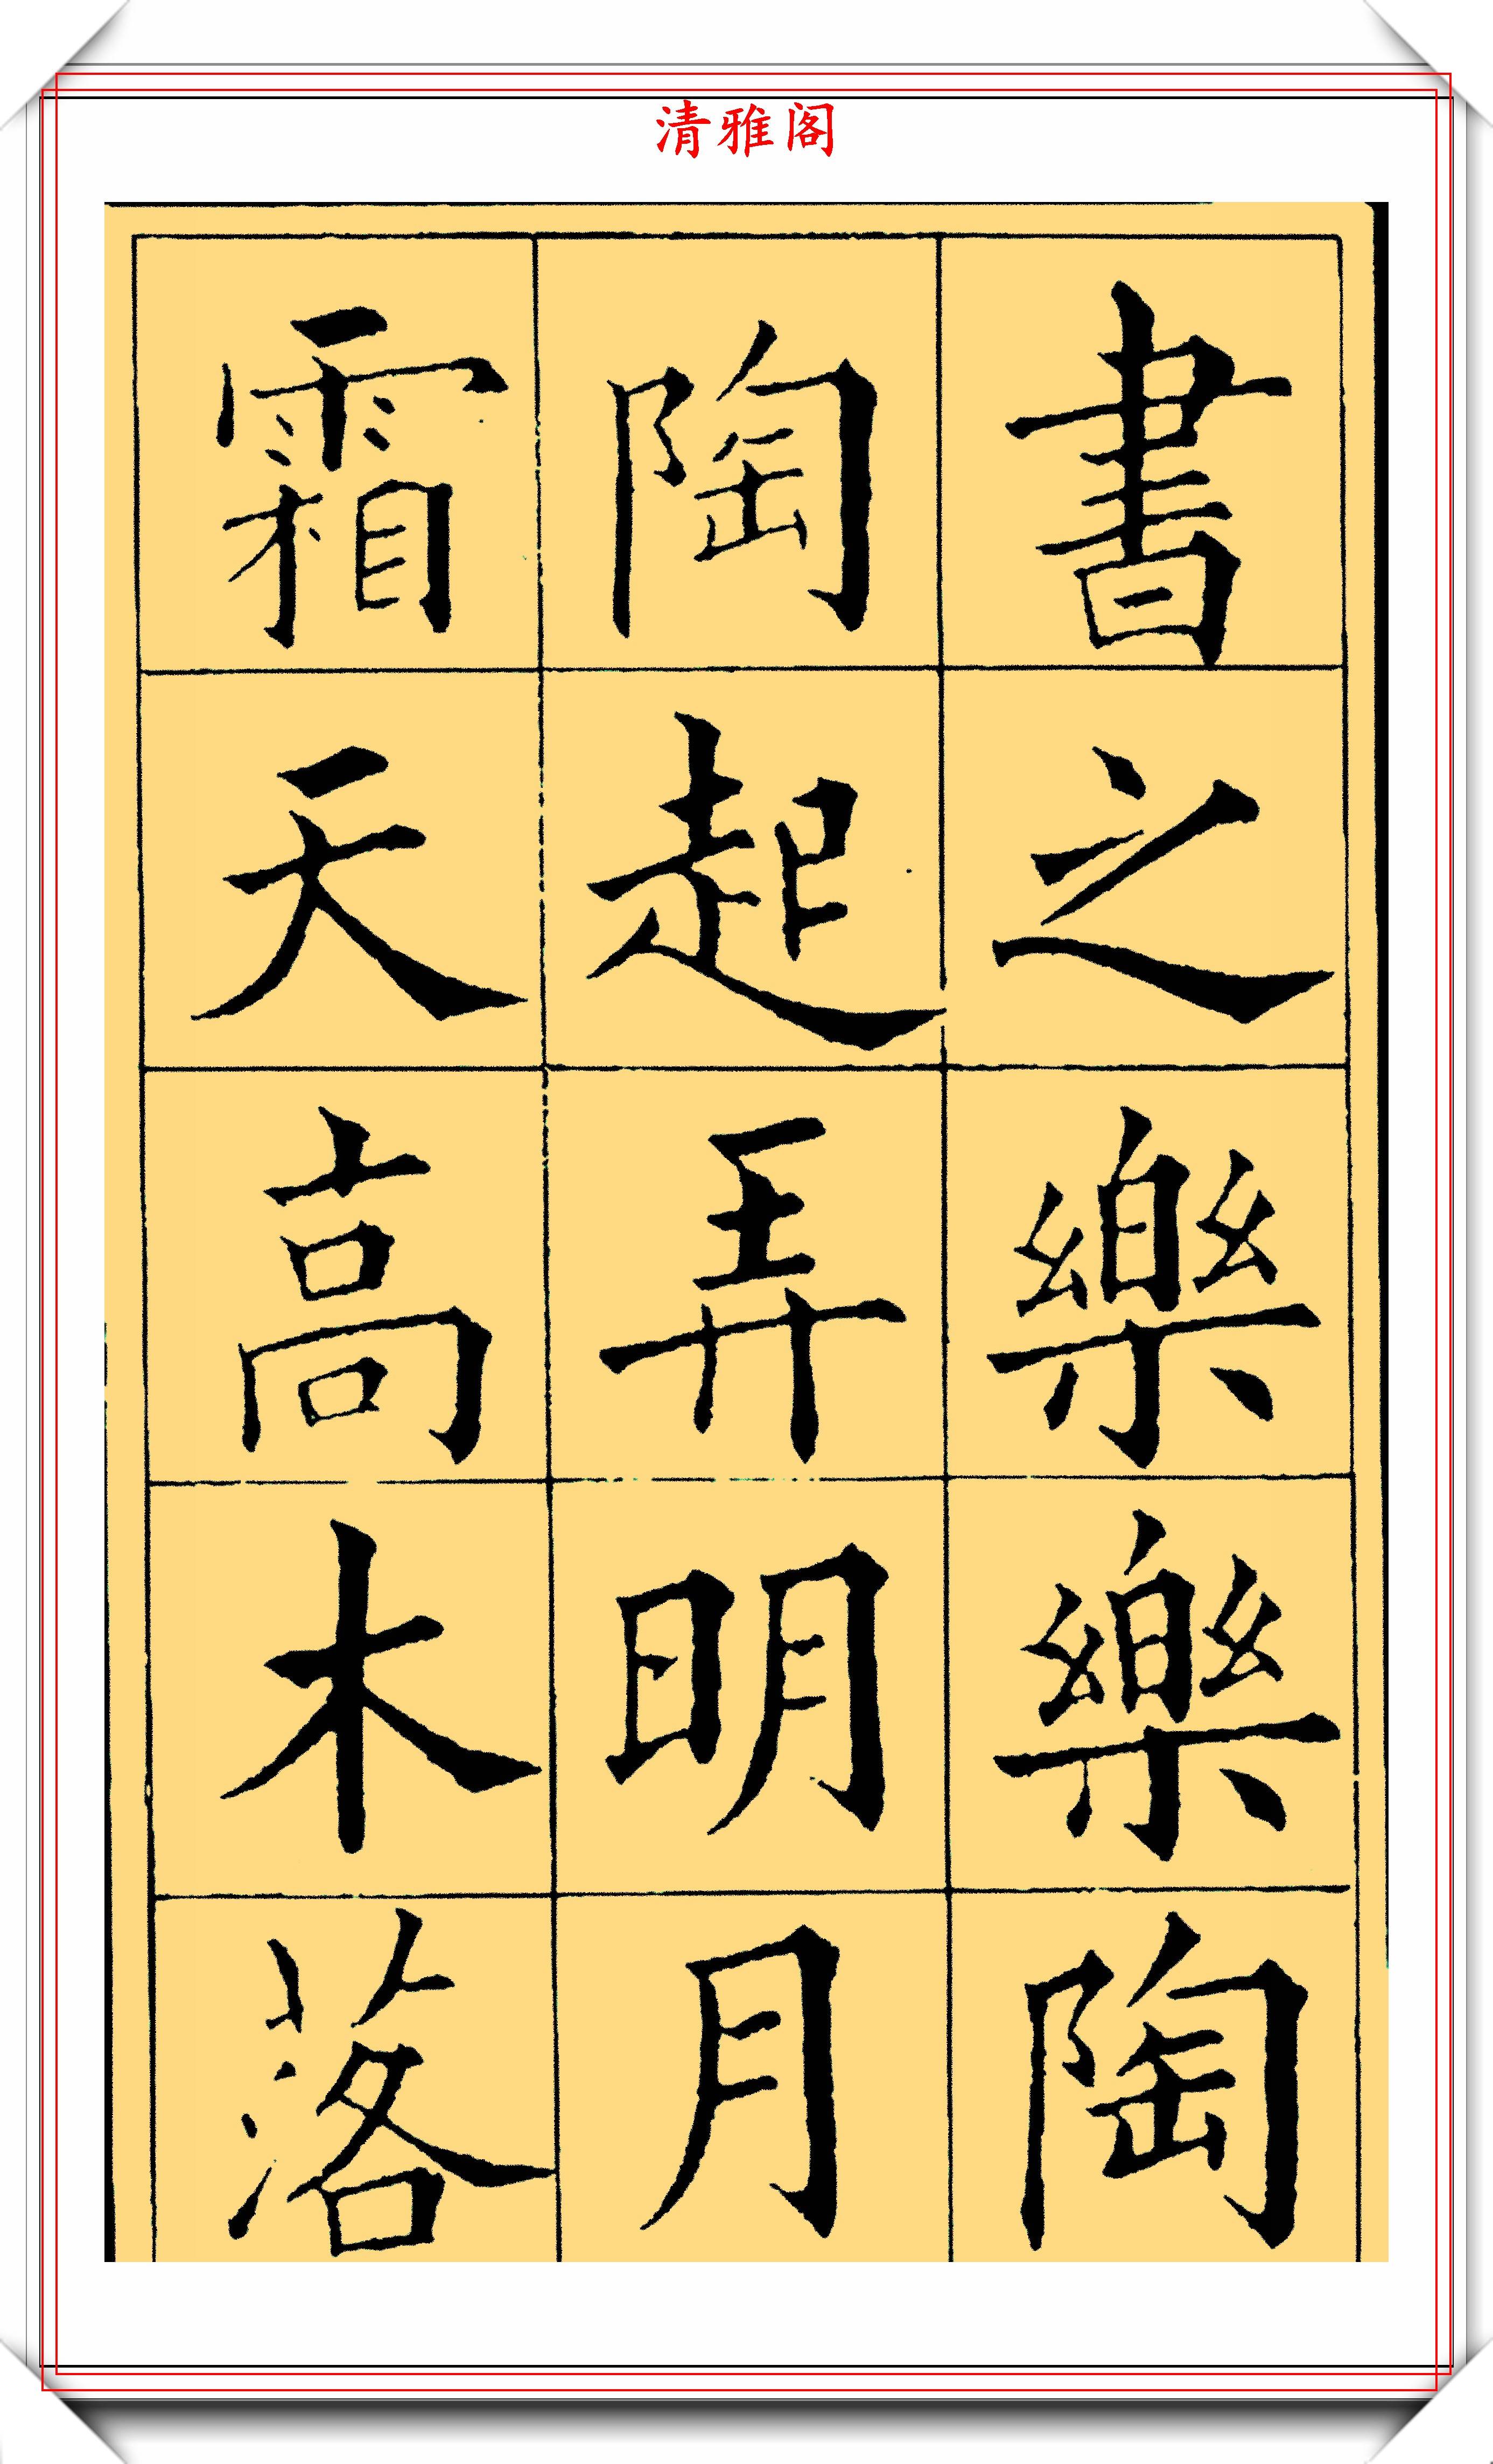 清雅阁
書之樂樂陶
陶起弄明月
霜天高木落